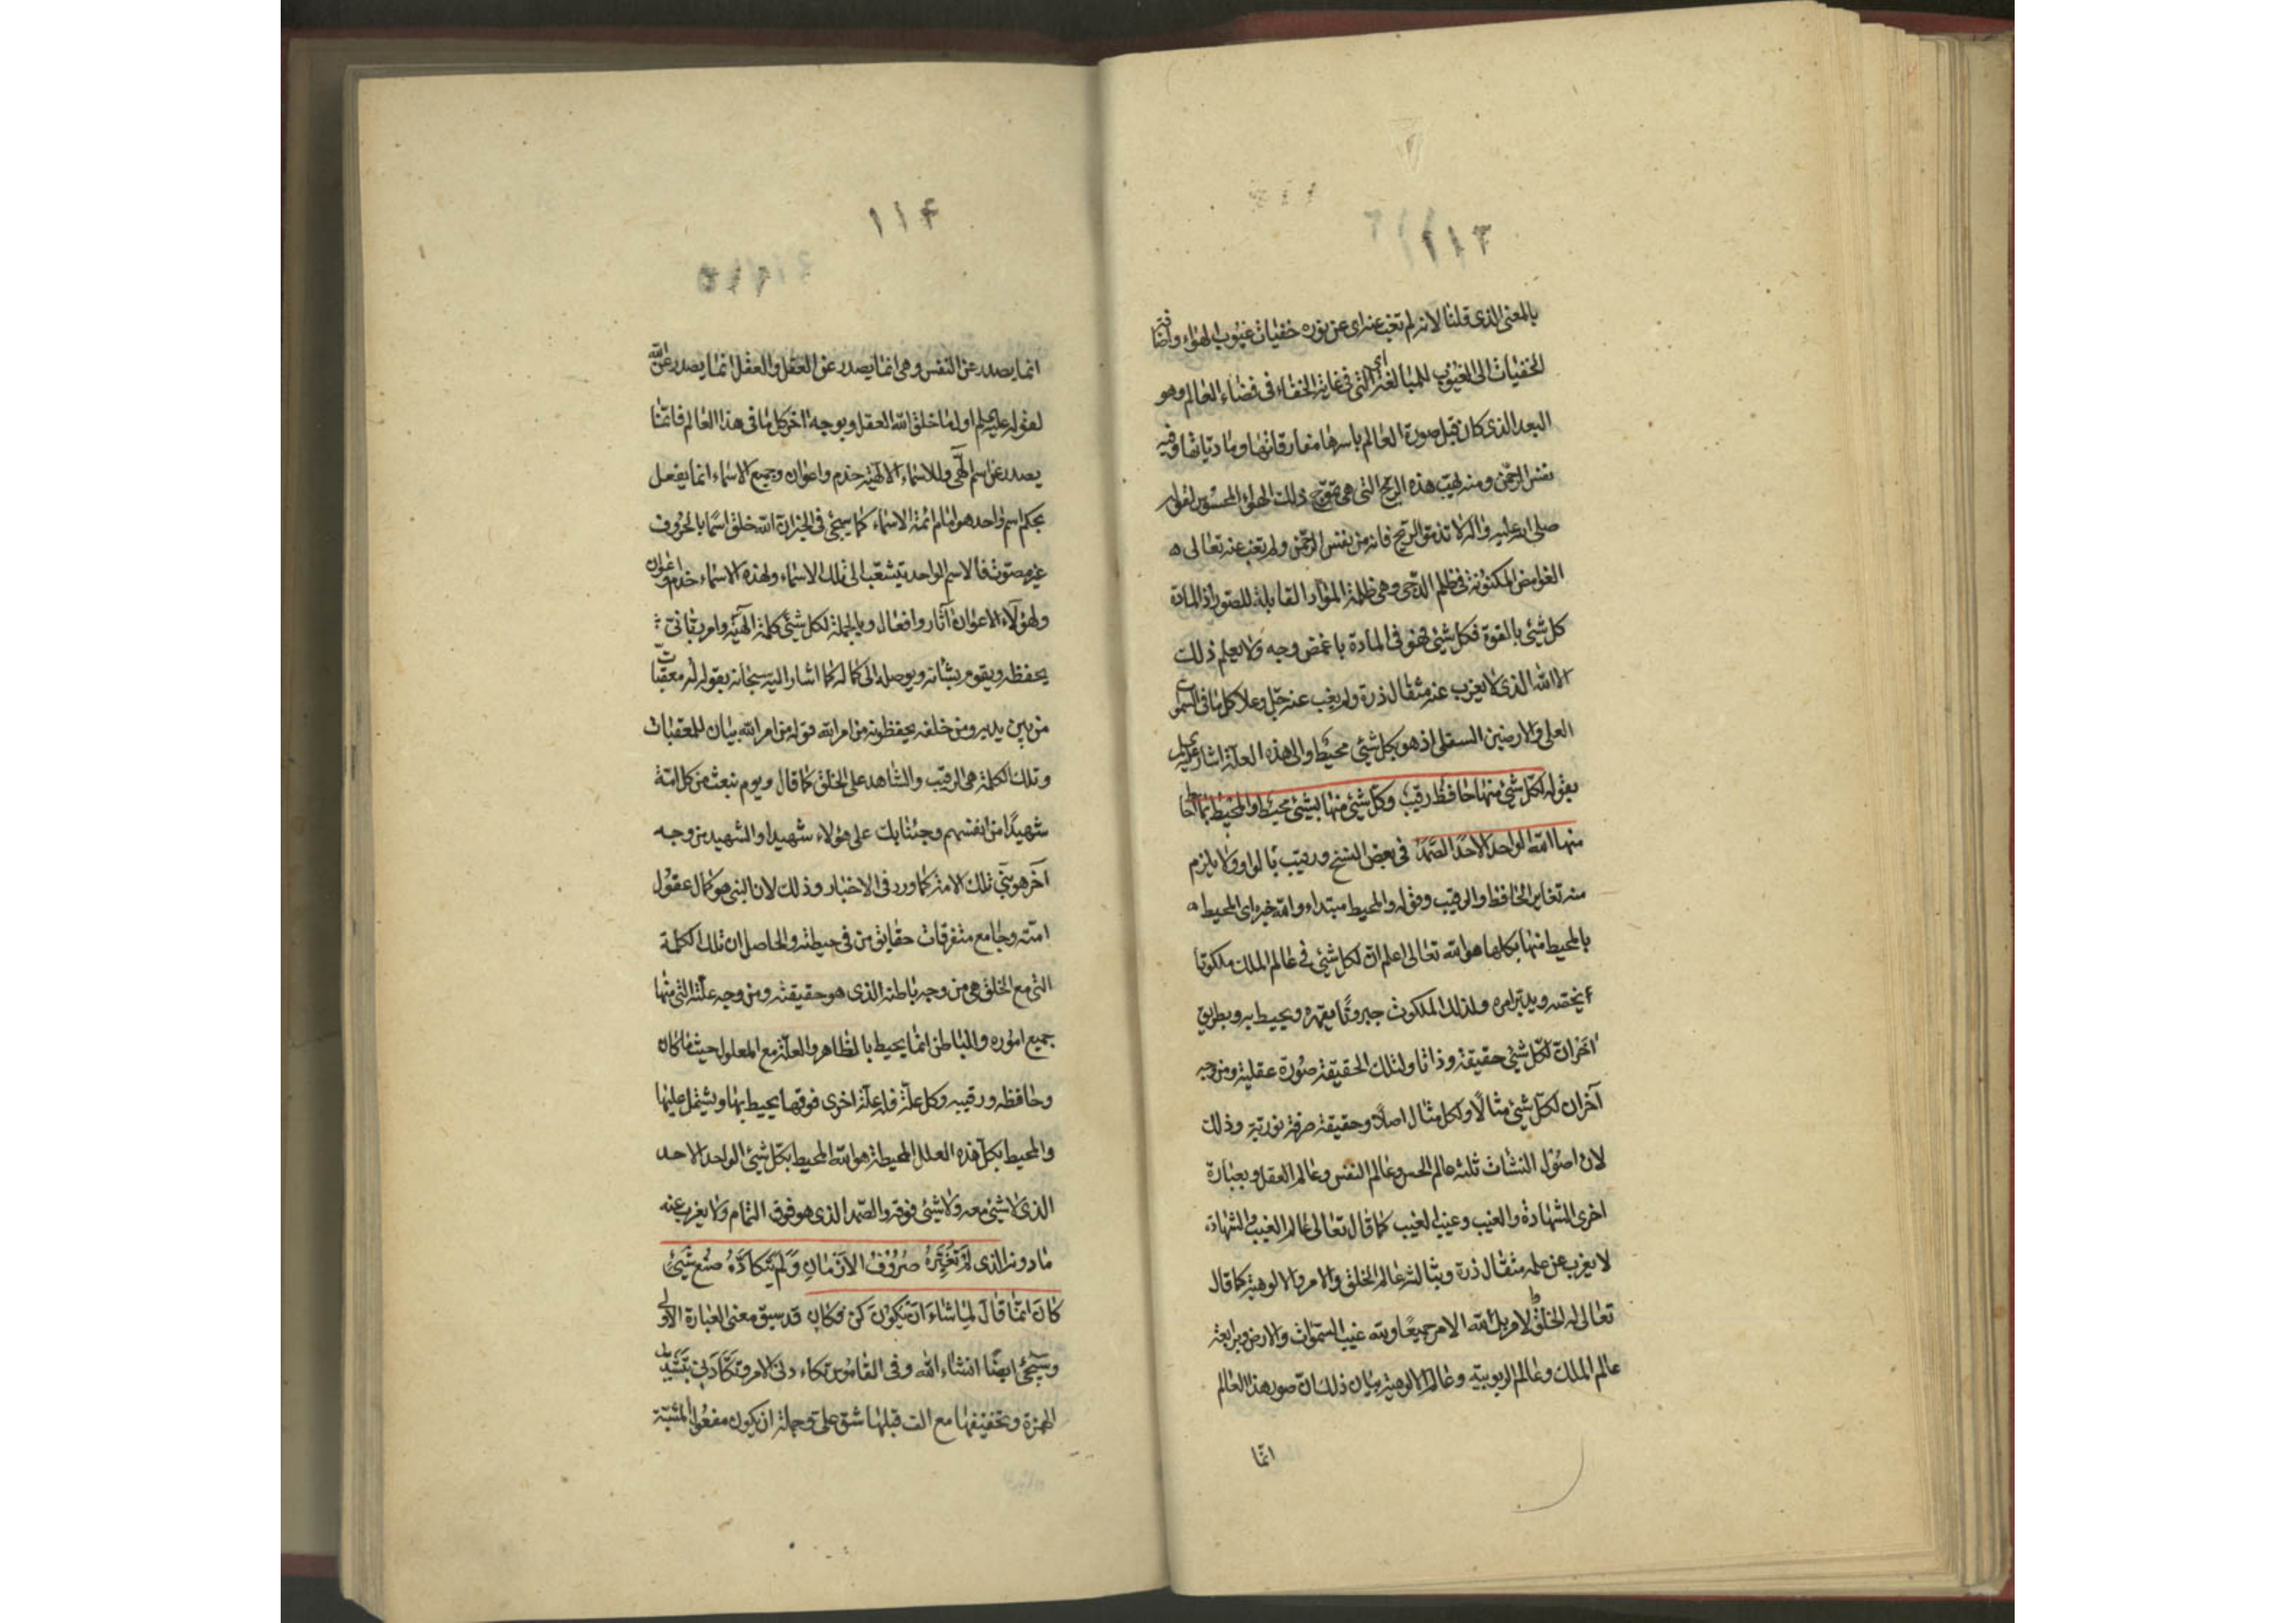 ١١٣
بالمعنى الذى قلنا لانه لم تغب عنه اى عن نوره خفيات غيوب الهواء واضافة
الخفيات الى الغيوب للمبالغة اى التى فى غاية الخفاء فى فضاء العالم وهو
البعد الذى كان قبل صورة العالم باسرها مفارقاتها ومادياتها وفيه
نفس الرحمن ومنه لهب هذه الريح التى هى تموج ذلك الهواء المحسوس لقوله
صلى الله عليه واله لا تذموا الريح فانه من نفس الرحمن ولم تغب عنه تعالى ه
الغوامض المكنونة فى ظلم الدجى وهى ظلمة المواد القابلة للصور اذ المادة
كل شئ بالقوة فكل شئ فهو فى المادة باغمض وجه ولا يعلم ذلك
الا الله الذى لا يعزب عنه مثقال ذرة ولم يغب عنه جل وعلا كل ما فى السموات
العلى والارضين السفلى اذ هو بكل شئ محيط والى هذه العلة اشار عليه السلم
بقوله لكل شئ منها حافظ رقيب وكل شئ منها بشئ محيط والمحيط بما احاط
منها الله الواحد الاحد الصمد فى بعض النسخ ورقيب بالواو ولا يلزم
منه تغاير الحافظ والرقيب وقوله والمحيط مبتداء والله خبره اى المحيط ه
بالمحيط منها بكلها هو الله تعالى اعلم ان لكل شئ فى عالم الملك ملكوتا
يخصه ويدبر امره ولذلك الملكوت جبروتا يقهره ويحيط به وبطريق
اخر ان لكل شئ حقيقة وذاتا ولتلك الحقيقة صورة عقلية ومن وجه
آخر ان لكل شئ مثالا ولكل مثال اصلا وحقيقة صرفة نورية وذلك
لان اصول النشات ثلثة عالم الحس وعالم النفس وعالم العقل وبعبارة
اخرى الشهادة والغيب وغيب الغيب كما قال تعالى عالم الغيب والشهادة
لا يعزب عن علمه مثقال ذرة وبثالثة عالم الخلق والامر والالوهية كما قال
تعالى له الخلق والامر بل لله الامر جميعا ولله غيب السموات والارض وبرابعة
عالم الملك وعالم الربوبية وعالم الالوهية بيان ذلك ان صور هذا العالم
انما
١١۴
انما يصدر عن النفس وهى انما يصدر عن العقل والعقل انما يصدر عن الله
لقوله عليه السلم اول ما خلق الله العقل وبوجه اخر كل ما فى هذا العالم فانما
يصدر عن اسم الهى وللاسماء الالهية خدم واعوان وجميع الاسماء انما يفعل
بحكم اسم واحد هو امام ائمة الاسماء كما سيجئ فى الخبر ان الله خلق اسما بالحروف
غير مصوت فالاسم الواحد يتشعب الى تلك الاسماء ولهذه الاسماء خدم واعوان
ولهؤلاء الاعوان آثار وافعال وبالجملة لكل شئ كلمة الهية وامر ربانى
يحفظه ويقوم بشانه ويوصله الى كماله كما اشار اليه سبحانه بقوله له معقبات
من بين يديه ومن خلفه يحفظونه من امر الله قوله من امر الله بيان للمعقبات
وتلك الكلمة هى الرقيب والشاهد على الخلق كما قال ويوم نبعث من كل امة
شهيدا من انفسهم وجئنا بك على هؤلاء شهيدا والشهيد بن وجه
آخر هو نبى تلك الامة كما ورد فى الاخبار وذلك لان النبى هو كمال عقول
امته وجامع متفرقات حقايق من فى حيطته والحاصل ان تلك الكلمة
التى مع الخلق هى من وجه باطنه الذى هو حقيقته ومن وجه علته التى منها
جميع اموره والباطن انما يحيط بالظاهر والعلة مع المعلول حيثما كان
وحافظه ورقيبه وكل علة فله علة اخرى فوقها يحيط بها ويشتمل عليها
والمحيط بكل هذه العلل المحيطة هو الله المحيط بكل شئ الواحد الاحد
الذى لا شئ معه ولا شئ فوقه والصمد الذى هو فوق التمام ولا يعزب عنه
ما دونه الذى لم تغيره صروف الازمان ولم يتكاده صنع شئ
كان انما قال لما شاء ان يكون كن فكان قد سبق معنى العبارة الاولى
وسيجئ ايضا انشاء الله وفى القاموس تكاءدنى الامر وتكأدنى بتشديد
الهمزة وتخفيفها مع الف قبلها شق على وجملة ان يكون مفعول المشية